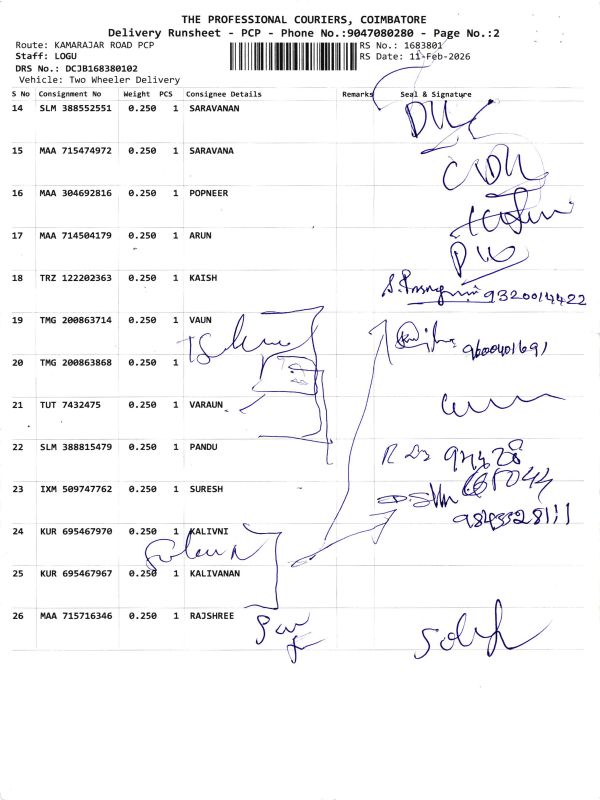 THE PROFESSIONAL COURIERS, COIMBATORE
Delivery Runsheet - PCP - Phone No.:9047080280 - Page No.:2
Route: KAMARAJAR ROAD PCP RS No.: 1683801
Staff: LOGU RS Date: 11-Feb-2026
DRS No.: DCJB168380102
Vehicle: Two Wheeler Delivery
S No Consignment No Weight PCS Consignee Details Remarks Seal & Signature
14 SLM 388552551 0.250 1 SARAVANAN
15 MAA 715474972 0.250 1 SARAVANA
16 MAA 304692816 0.250 1 POPNEER
17 MAA 714504179 0.250 1 ARUN
18 TRZ 122202363 0.250 1 KAISH
9320014422
19 TMG 200863714 0.250 1 VAUN
9600401691
20 TMG 200863868 0.250 1
21 TUT 7432475 0.250 1 VARAUN
22 SLM 388815479 0.250 1 PANDU
23 IXM 509747762 0.250 1 SURESH
24 KUR 695467970 0.250 1 KALIVNI
25 KUR 695467967 0.250 1 KALIVANAN
26 MAA 715716346 0.250 1 RAJSHREE